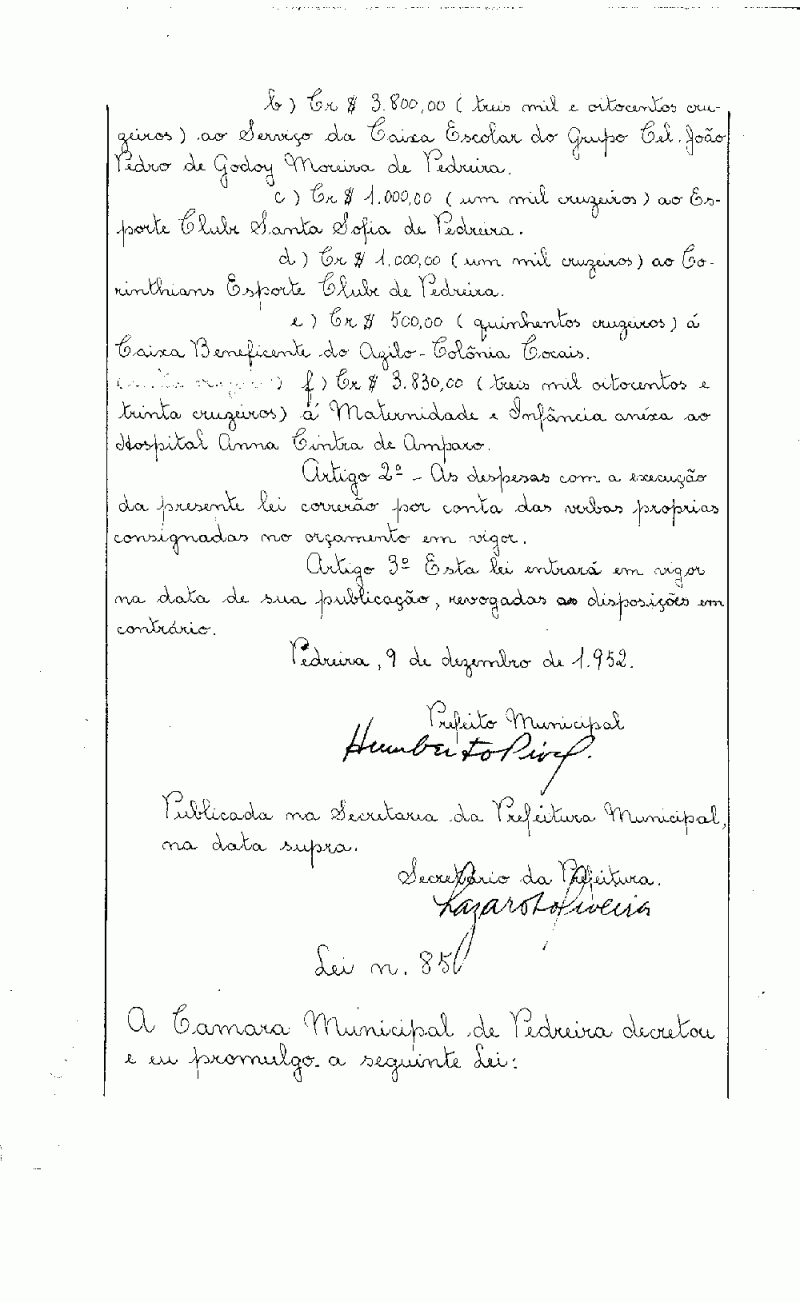 b) Cr $ 3.800,00 (treis mil e oitocentos cru-
zeiros) ao Serviço da Caixa Escolar do Grupo Cel. João
Pedro de Godoy Moreira de Pedreira.
c) Cr $ 1.000,00 (um mil cruzeiros) ao Es-
porte Clube Santa Sofia de Pedreira.
d) Cr $ 1.000,00 (um mil cruzeiros) ao Co-
rinthians Esporte Clube de Pedreira.
e) Cr $ 500,00 (quinhentos cruzeiros) á
Caixa Beneficente do Azilo-Colônia Cocais.
f) Cr $ 3.830,00 (treis mil oitocentos e
trinta cruzeiros) á Maternidade e Infância anéxa ao
Hospital Anna Cintra de Amparo.
Artigo 2º - As despesas com a execução
da presente lei correrão por conta das verbas proprias
consignadas no orçamento em vigor.
Artigo 3º Esta lei entrará em vigor
na data de sua publicação, revogadas as disposições em
contrário.
Pedreira, 9 de dezembro de 1.952.
Prefeito Municipal
Humberto Piva.
Publicada na Secretaria da Prefeitura Municipal,
na data supra.
Secretário da Prefeitura.
Lazaro Oliveira
Lei n. 85
A Camara Municipal de Pedreira decretou
e eu promulgo a seguinte Lei: